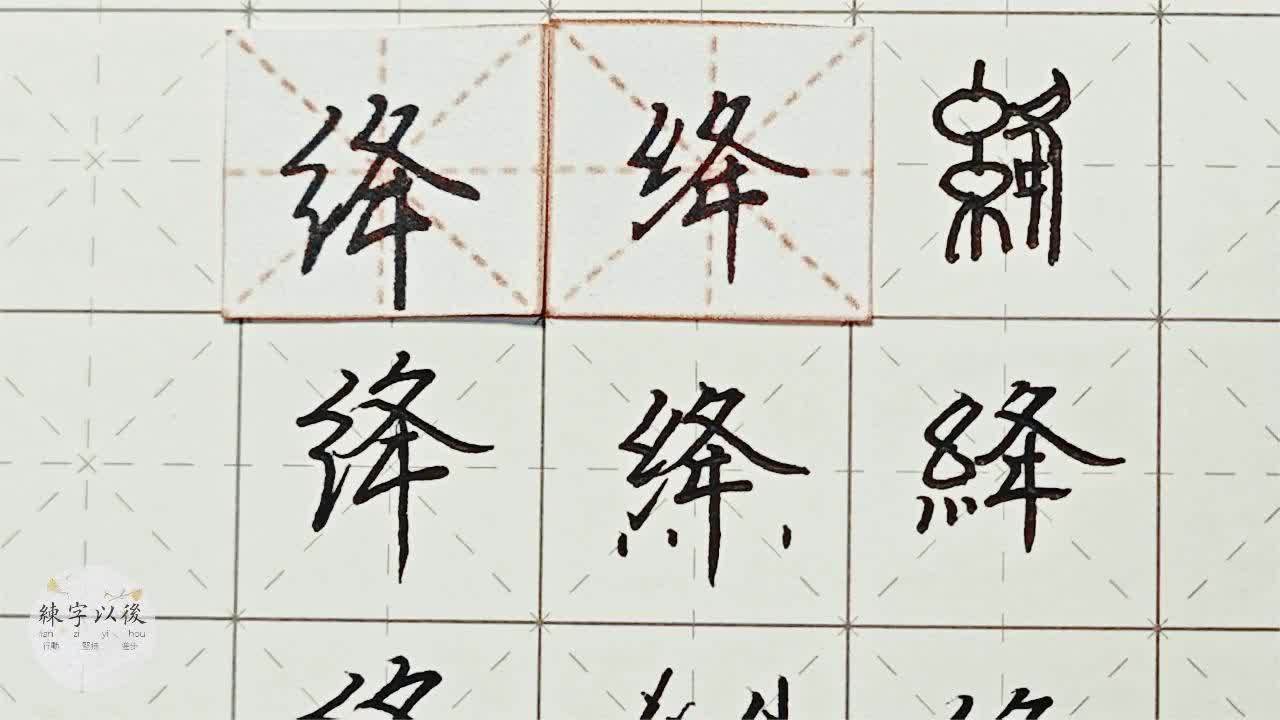 绛 绛 絳
绛 絳 絳
練字以後
lian zi yi hou
行動 堅持 進步